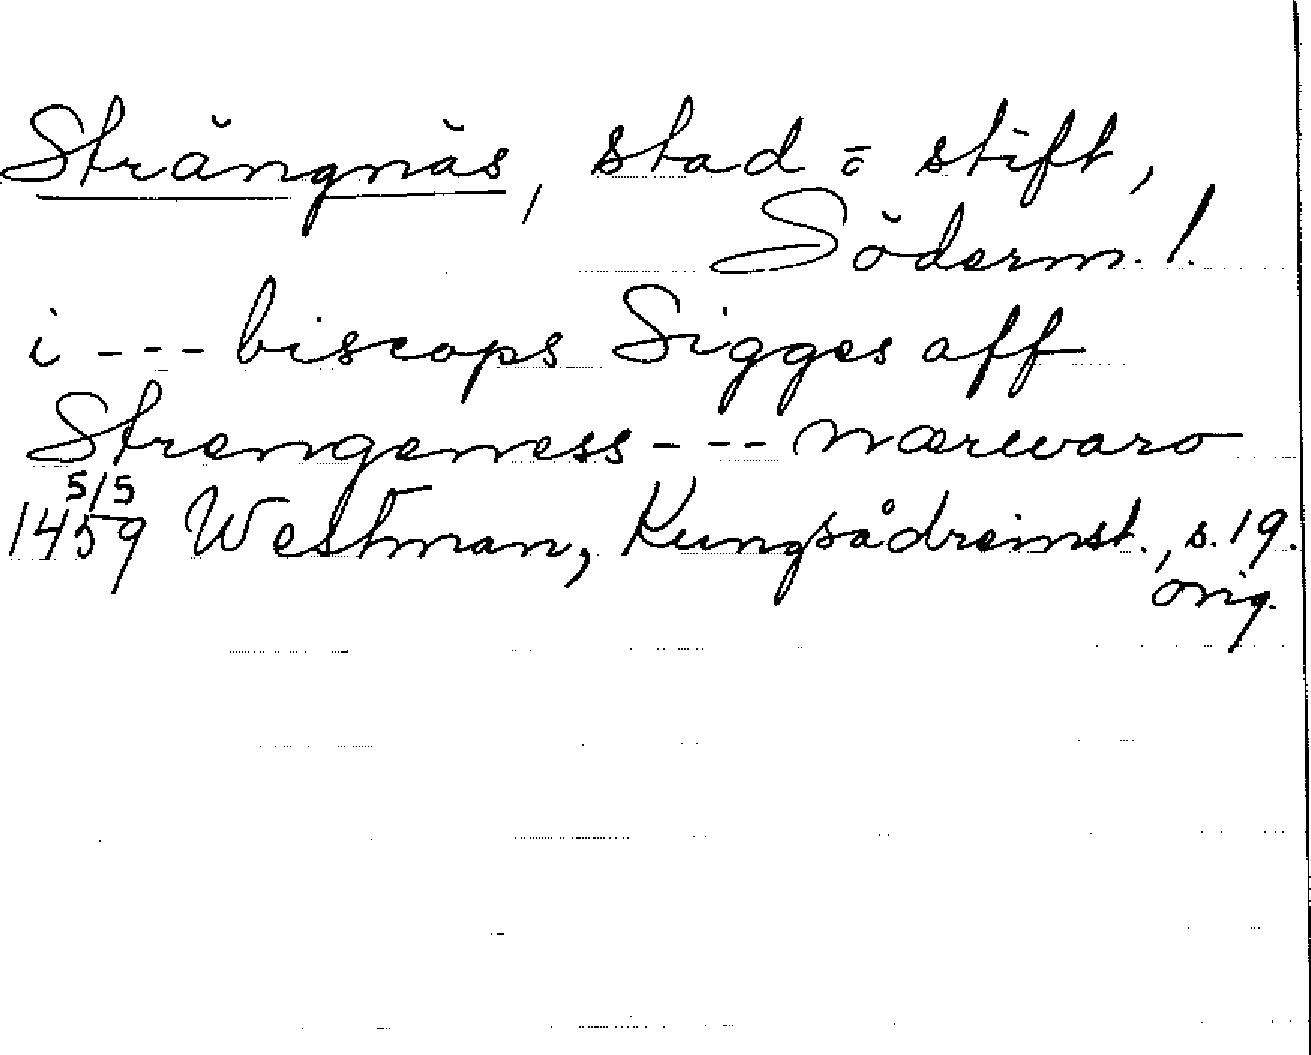 Strängnäs, stad o stift,
Söderm. l.
i --- biscops Sigges aff
Strengeness --- nærewaro
5/5
1459 Westman, Kungsådreinst., s. 19.
orig.